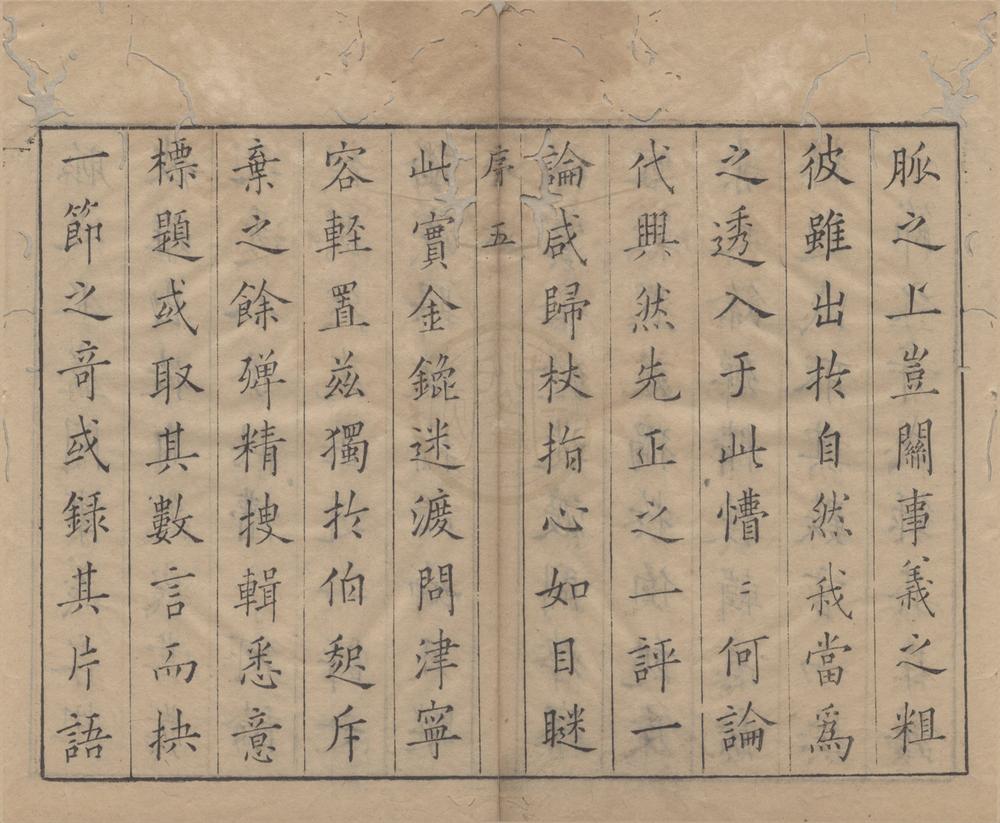 脈之上豈關事義之粗
彼雖出於自然我當爲
之透入于此懵〻何論
代興然先正之一評一
論咸歸杖指心如目瞇
序 五
此實金鎞迷渡問津寧
容軽置茲獨於伯起斥
棄之餘殫精搜輯悉意
標題或取其數言而抉
一節之竒或録其片語